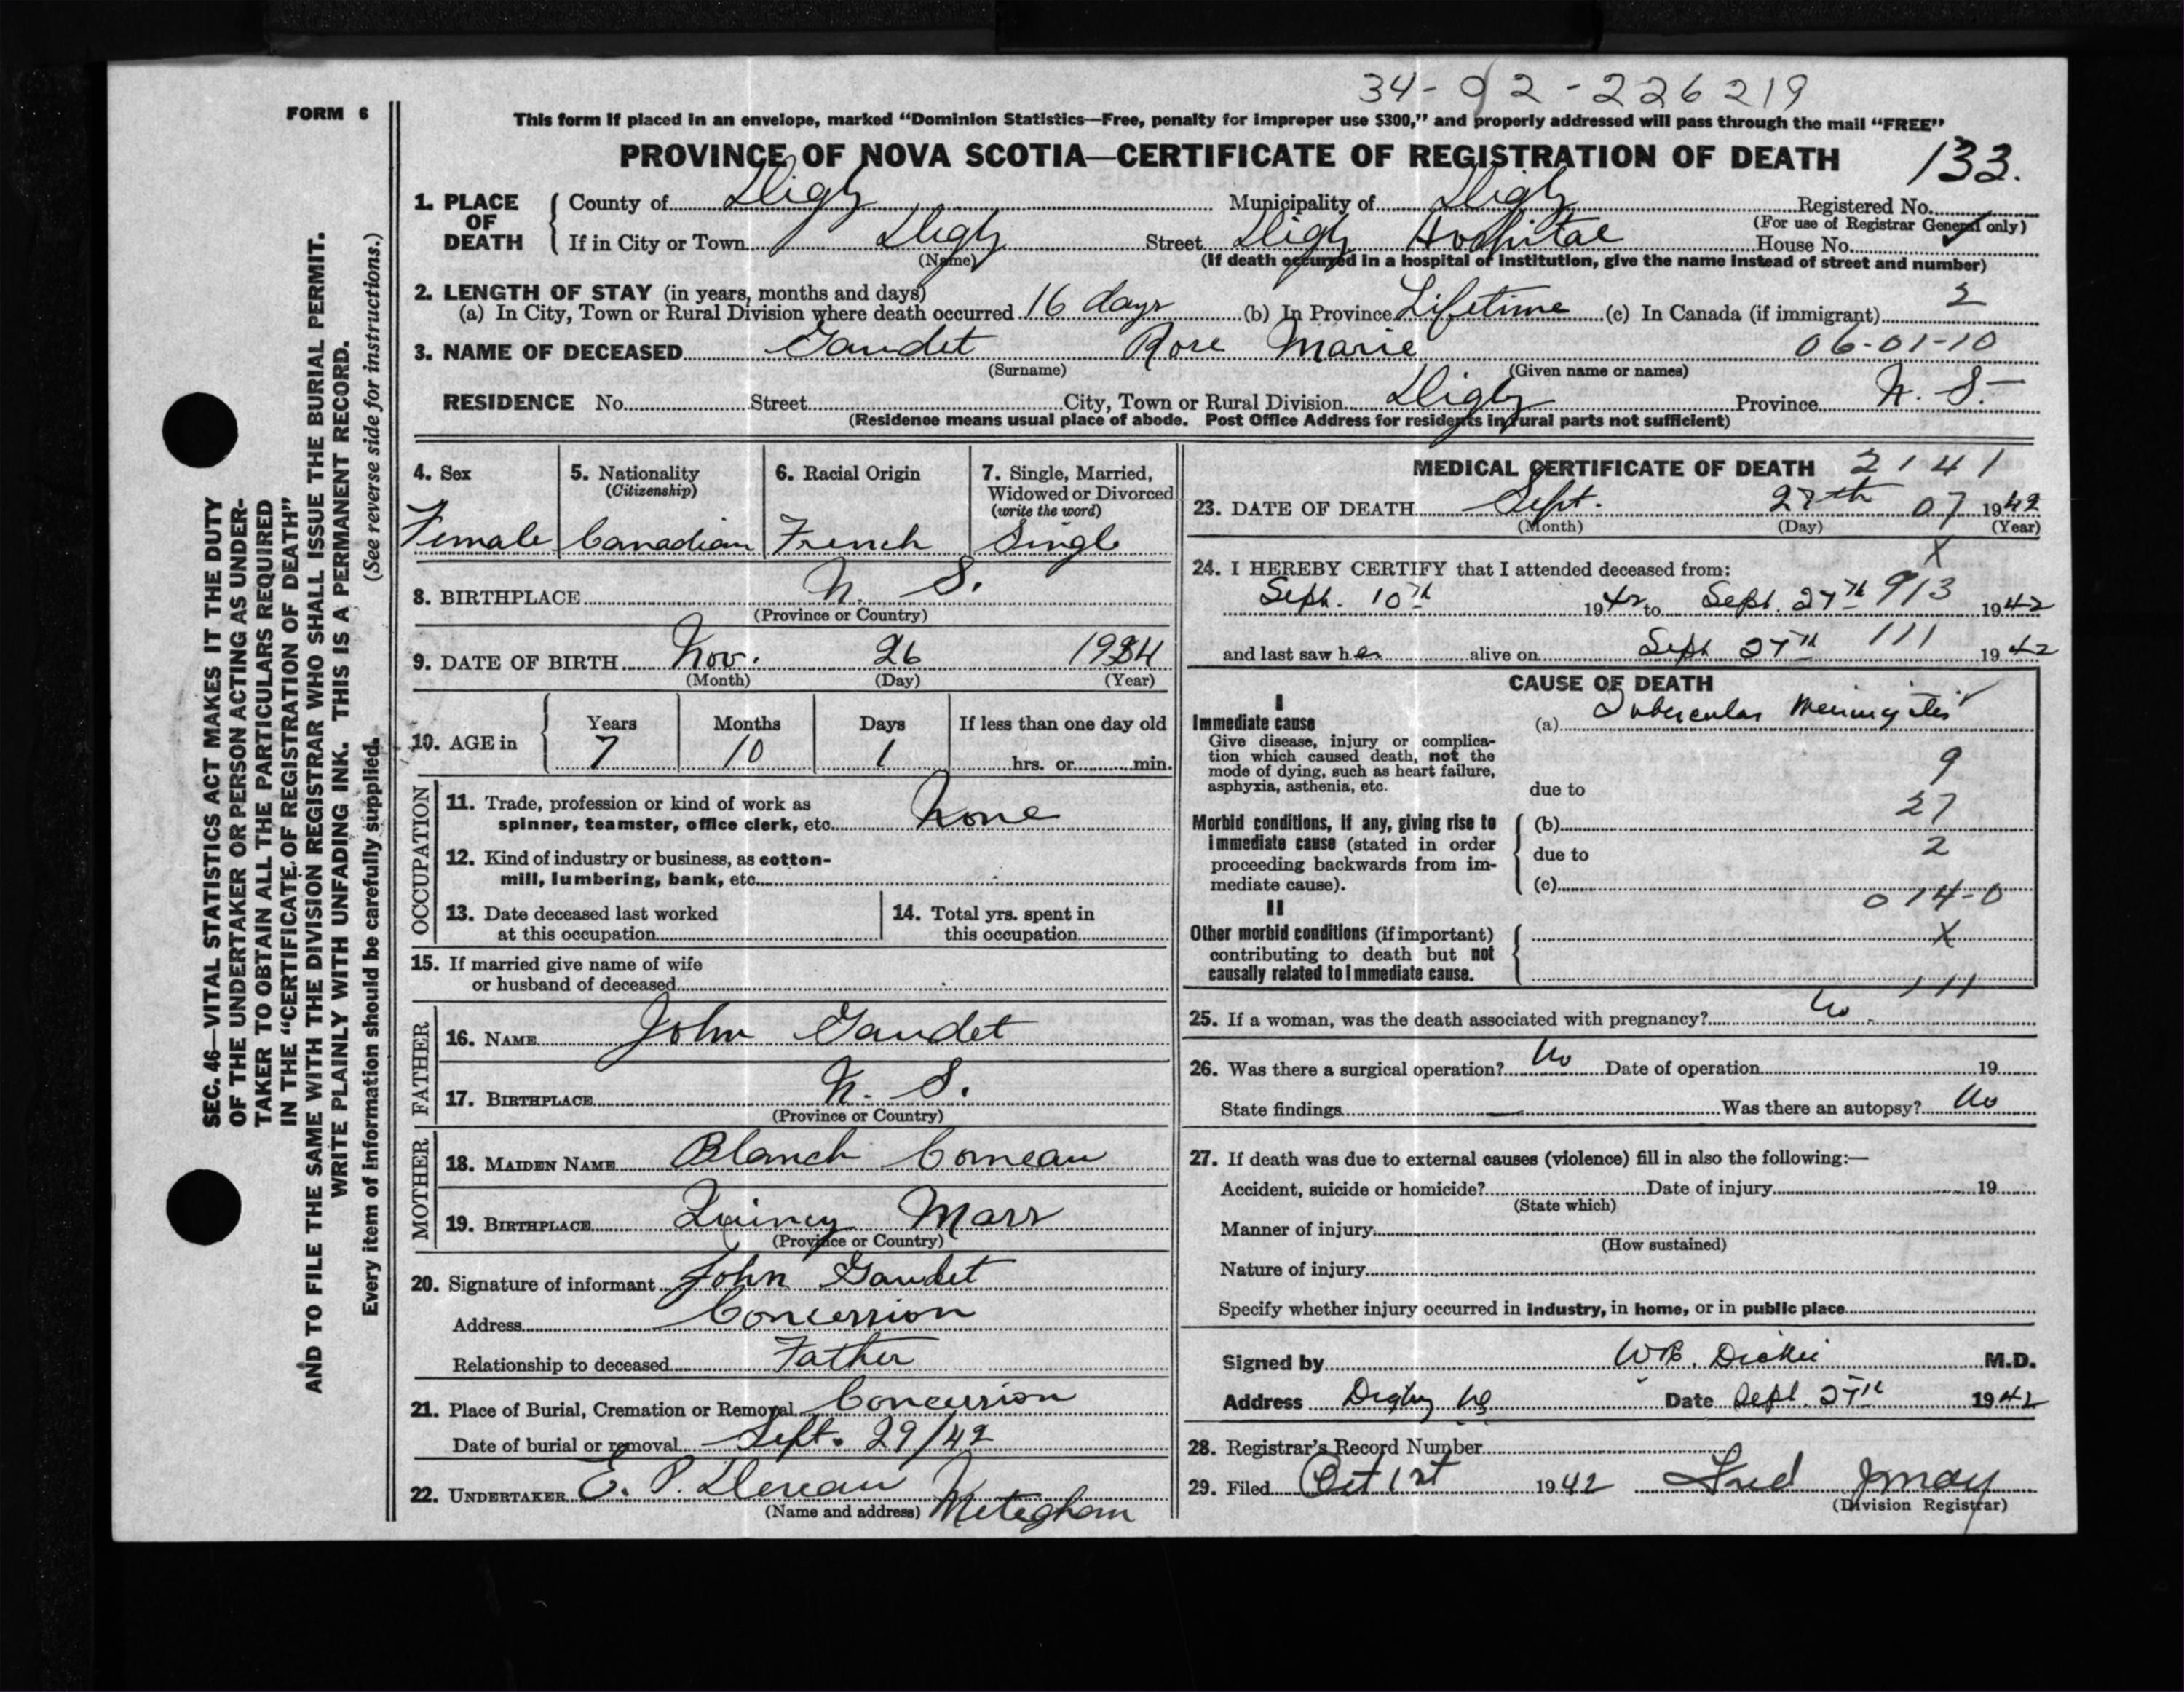 34-02-226219
FORM 6
This form if placed in an envelope, marked "Dominion Statistics—Free, penalty for improper use $300," and properly addressed will pass through the mail "FREE"
PROVINCE OF NOVA SCOTIA—CERTIFICATE OF REGISTRATION OF DEATH 133.
SEC. 46—VITAL STATISTICS ACT MAKES IT THE DUTY
OF THE UNDERTAKER OR PERSON ACTING AS UNDER-
TAKER TO OBTAIN ALL THE PARTICULARS REQUIRED
IN THE "CERTIFICATE OF REGISTRATION OF DEATH"
AND TO FILE THE SAME WITH THE DIVISION REGISTRAR WHO SHALL ISSUE THE BURIAL PERMIT.
WRITE PLAINLY WITH UNFADING INK. THIS IS A PERMANENT RECORD.
Every item of information should be carefully supplied. (See reverse side for instructions.)
1. PLACE OF DEATH
County of Digby Municipality of Digby Registered No.
(For use of Registrar General only)
If in City or Town Digby Street Digby Hospital House No.
(Name) (If death occurred in a hospital or institution, give the name instead of street and number)
2. LENGTH OF STAY (in years, months and days)
(a) In City, Town or Rural Division where death occurred 16 days (b) In Province Lifetime (c) In Canada (if immigrant) 2
3. NAME OF DECEASED Gaudet Rose Marie 06-01-10
(Surname) (Given name or names)
RESIDENCE No. Street City, Town or Rural Division Digby Province N. S.
(Residence means usual place of abode. Post Office Address for residents in rural parts not sufficient)
4. Sex
Female
5. Nationality
(Citizenship)
Canadian
6. Racial Origin
French
7. Single, Married,
Widowed or Divorced
(write the word)
Single
8. BIRTHPLACE N. S.
(Province or Country)
9. DATE OF BIRTH Nov. 26 1934
(Month) (Day) (Year)
10. AGE in
Years Months Days If less than one day old
7 10 1 hrs. or min.
OCCUPATION
11. Trade, profession or kind of work as
spinner, teamster, office clerk, etc. None
12. Kind of industry or business, as cotton-
mill, lumbering, bank, etc.
13. Date deceased last worked
at this occupation
14. Total yrs. spent in
this occupation
15. If married give name of wife
or husband of deceased
FATHER
16. NAME John Gaudet
17. BIRTHPLACE N. S.
(Province or Country)
MOTHER
18. MAIDEN NAME Blanch Comeau
19. BIRTHPLACE Quincy Mass
(Province or Country)
20. Signature of informant John Gaudet
Address Concession
Relationship to deceased Father
21. Place of Burial, Cremation or Removal Concession
Date of burial or removal Sept. 29/42
22. UNDERTAKER E. P. Meteghan
(Name and address)
MEDICAL CERTIFICATE OF DEATH 2141
23. DATE OF DEATH Sept. 27th 07 1942
(Month) (Day) (Year)
X
24. I HEREBY CERTIFY that I attended deceased from:
Sept. 10th 1942 to Sept. 27th 913 1942
and last saw her alive on Sept 27th 111 1942
CAUSE OF DEATH
I
Immediate cause
Give disease, injury or complica-
tion which caused death, not the
mode of dying, such as heart failure,
asphyxia, asthenia, etc.
(a) Tubercular Meningitis
9
due to
27
Morbid conditions, if any, giving rise to
immediate cause (stated in order
proceeding backwards from im-
mediate cause).
(b)
due to 2
(c)
014-0
II
Other morbid conditions (if important)
contributing to death but not
causally related to immediate cause.
X
111
25. If a woman, was the death associated with pregnancy? No.
26. Was there a surgical operation? No Date of operation 19
State findings — Was there an autopsy? No
27. If death was due to external causes (violence) fill in also the following:—
Accident, suicide or homicide? Date of injury 19
(State which)
Manner of injury
(How sustained)
Nature of injury
Specify whether injury occurred in industry, in home, or in public place
Signed by W B. Dickie M.D.
Address Digby NS Date Sept. 27th 1942
28. Registrar's Record Number
29. Filed Oct 1st 1942 Fred
(Division Registrar)